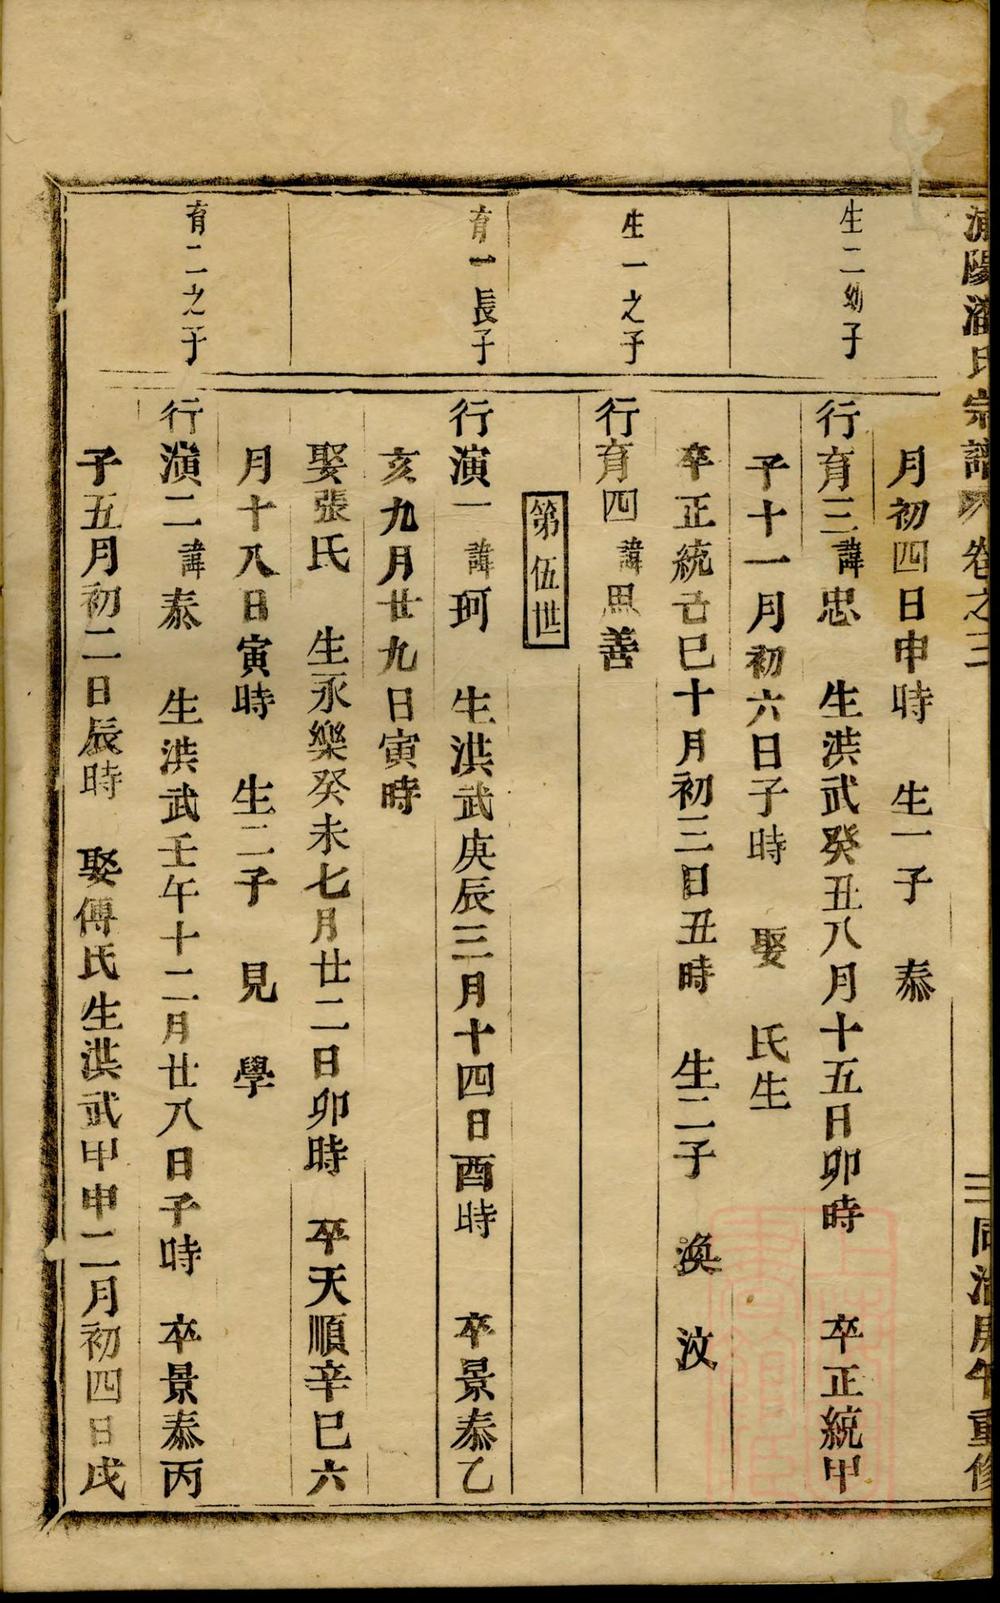 浦陽潘氏宗譜 卷之三 三 同治庚午重修
月初四日申時 生一子 泰
生二幼子
行育三諱忠 生洪武癸丑八月十五日卯時 卒正統甲
子十一月初六日子時 娶 氏生
卒正統己巳十月初三日丑時 生二子 渙 汶
生一之子
行育四諱思善
第伍世
育一長子
行演一諱珂 生洪武庚辰三月十四日酉時 卒景泰乙
亥九月廿九日寅時
娶張氏 生永樂癸未七月廿二日卯時 卒天順辛巳六
月十八日寅時 生二子 見 學
育二之子
行演二諱泰 生洪武壬午十二月廿八日子時 卒景泰丙
子五月初二日辰時 娶傅氏生洪武甲申二月初四日戌